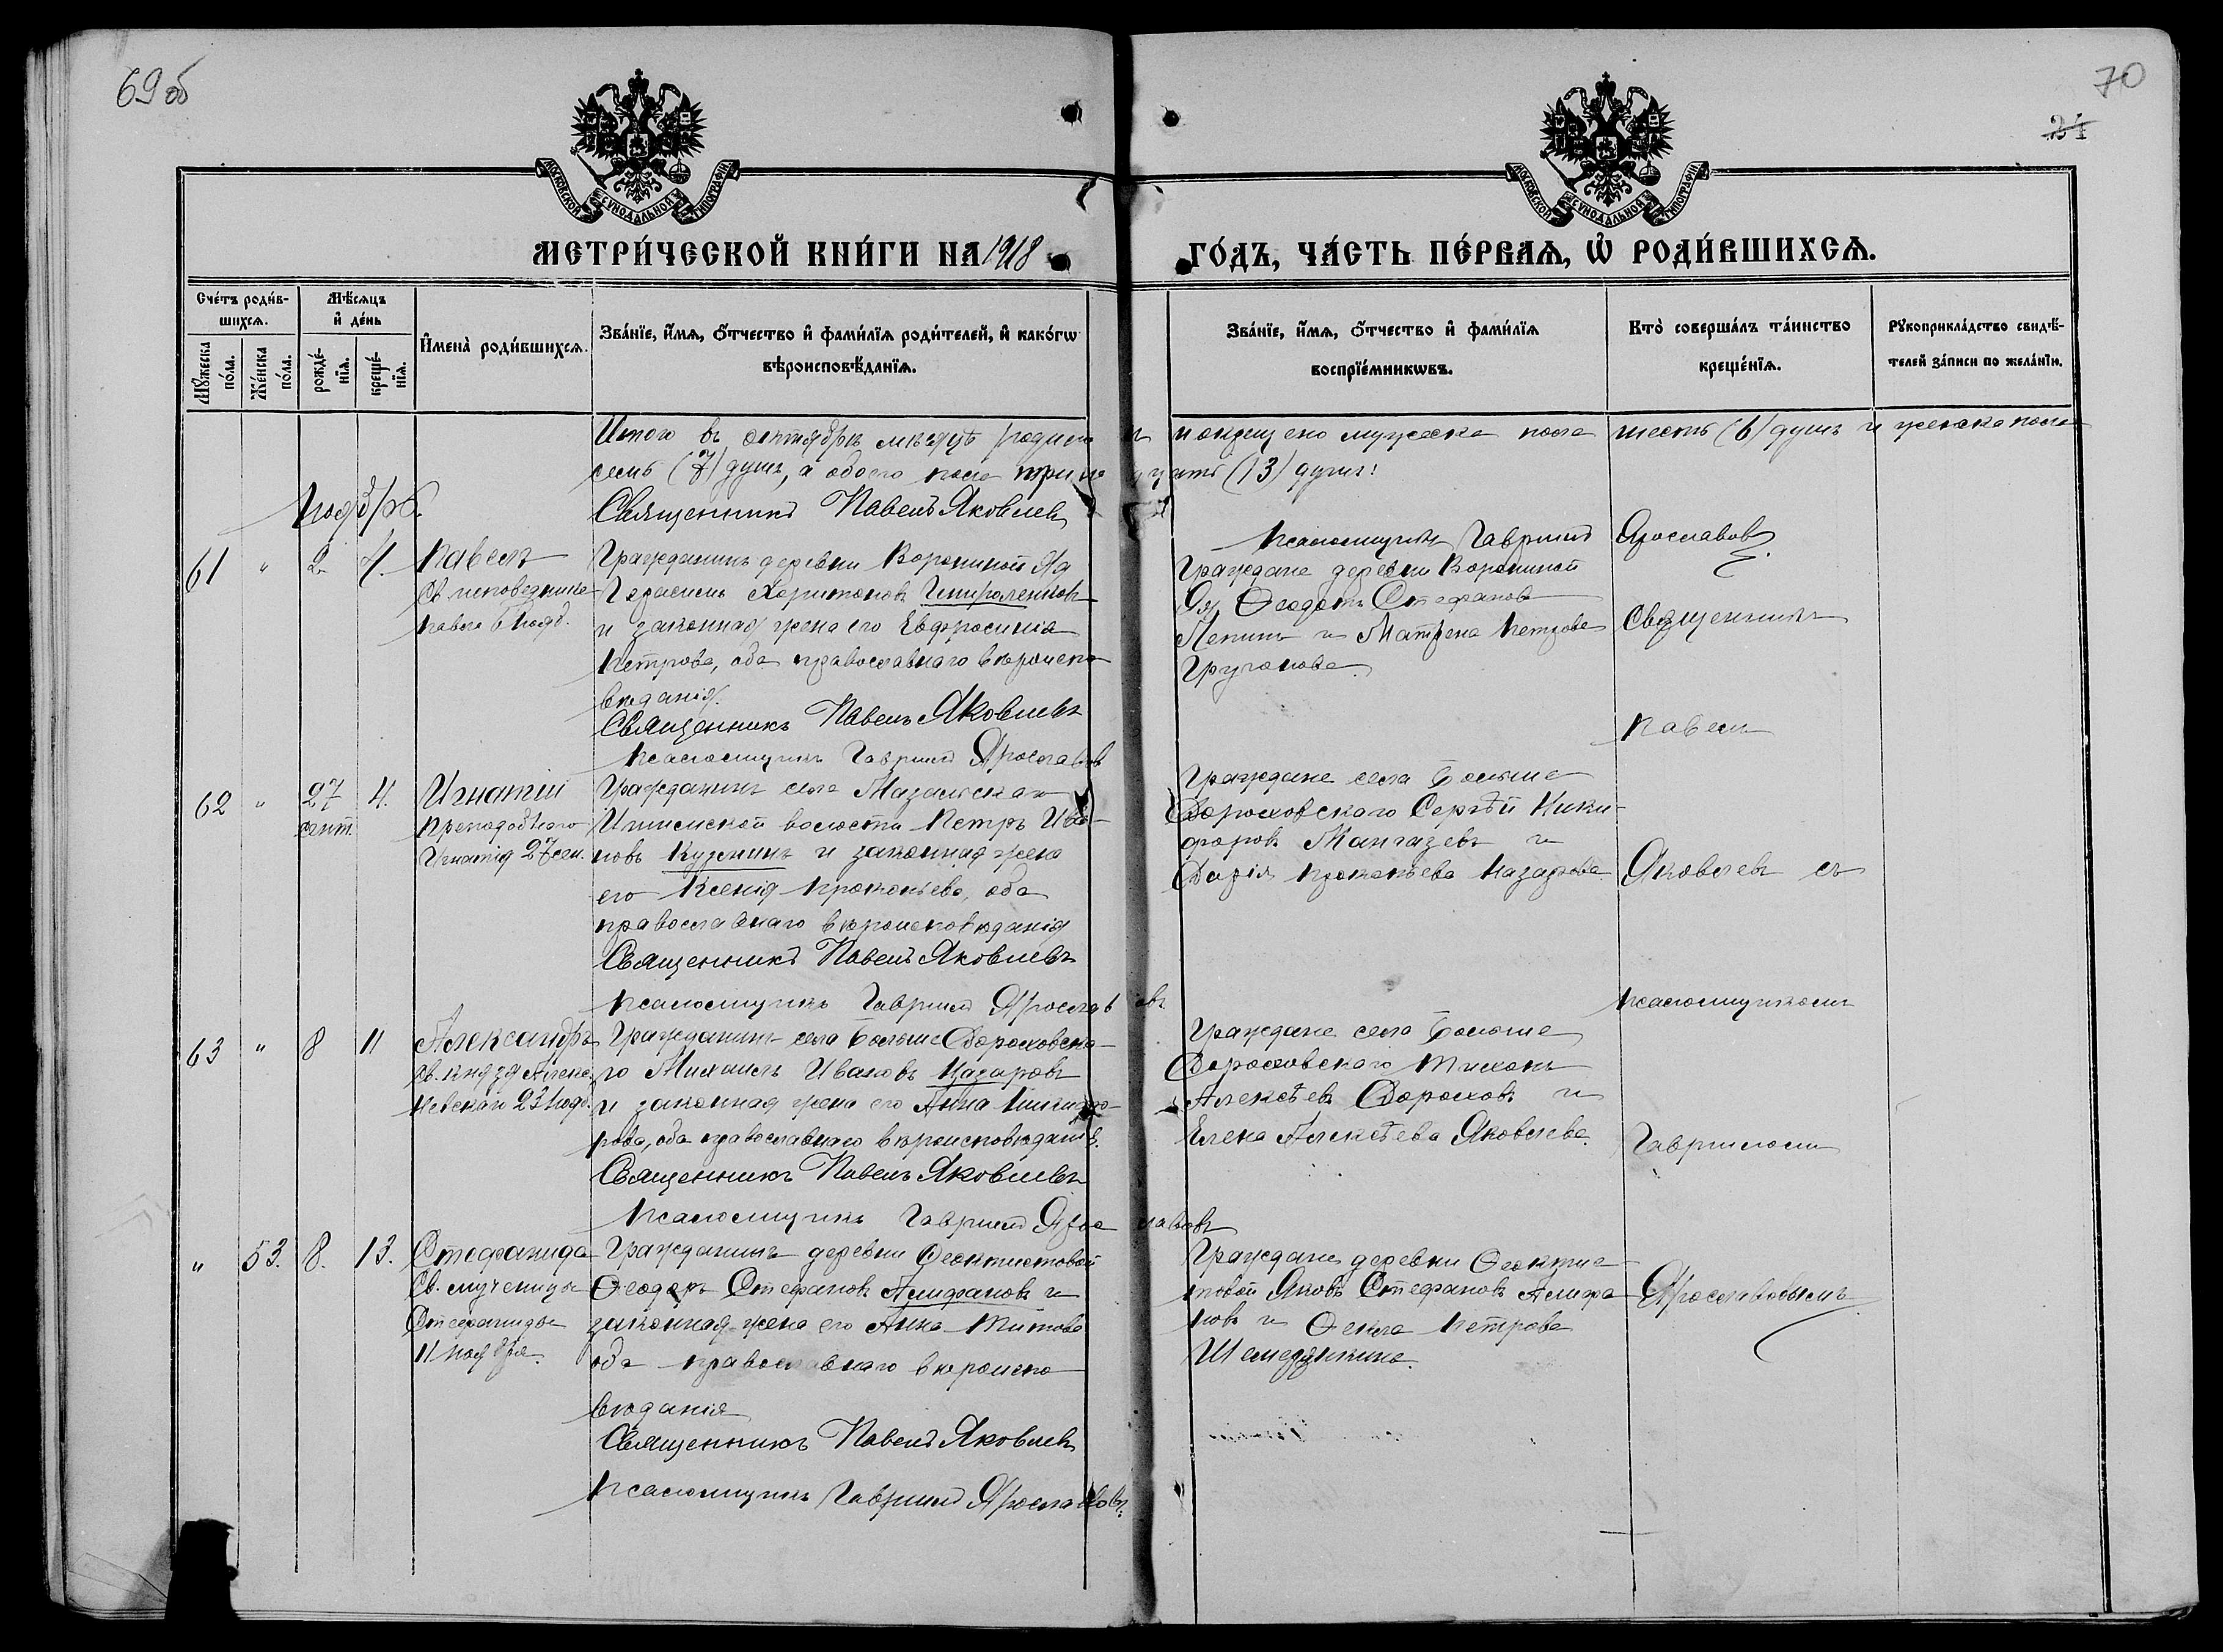 69об
70
24
МОСКОВСКОЙ СѴНОДАЛЬНОЙ ТИПОГРАФІИ
МОСКОВСКОЙ СѴНОДАЛЬНОЙ ТИПОГРАФІИ
МЕТРИ́ЧЕСКОЙ КНИ́ГИ НА 1918
ГО́ДЪ, ЧА́СТЬ ПЕ́РВАѦ, Ѡ҆ РОДИ́ВШИХСѦ.
Сче́тъ роди́в-
шихсѧ.
Мѣ́сѧцъ
и҆ де́нь
Мꙋ́жеска
по́ла.
Же́нска
по́ла.
рожде́-
нїѧ.
креще́-
нїѧ.
И҆мена̀ роди́вшихсѧ.
Зва́нїе, и҆́мѧ, ѻ҆́тчество и҆ фами́лїѧ роди́телей, и҆ како́гѡ
вѣроисповѣ́данїѧ.
Зва́нїе, и҆́мѧ, ѻ҆́тчество и҆ фами́лїѧ
воспрїе́мникѡвъ.
Кто̀ соверша́лъ та́инство
креще́нїѧ.
Рꙋкоприкла́дство свидѣ́-
телей за́писи по жела́нїю.
Итого въ октябрѣ мѣсяцѣ родил и окрещено мужеска пола шесть (6) душъ и женска пола
семь (7) душъ, а обоего пола тринадцать (13) душъ!
Священникъ Павелъ Яковлевъ
Псаломщикъ Гавріилъ Ярославовъ
Ноябрь.
61 " 2. 4. Павелъ
Св. исповедника
Павла 6 нояб.
Гражданинъ деревни Ворониной
Герасимъ Харитоновъ
и законная жена его Евфросинія
Петрова, оба православнаго вѣроиспо-
вѣданія.
Священникъ Павелъ Яковлевъ
Псаломщикъ Гавріилъ Ярославовъ
Граждане деревни Ворониной
Ѳеодотъ Стефановъ
Лепинъ и Матрена Петрова
Груганова.
Священникъ
Павелъ
62 " 27 сент. 4. Игнатій
Преподобнаго
Игнатія 27 сен.
Гражданинъ села Мазальска
Ишимской волости Петръ Ива-
новъ Кузнинъ и законная жена
его Ксенія Прокопьева, оба
православнаго вѣроисповѣданія
Священникъ Павелъ Яковлевъ
Псаломщикъ Гавріилъ Ярославовъ
Граждане села Больше
Дороховскаго Сергѣй Ники-
форовъ Мангазевъ и
Дарія Прокопьева Назарова.
Яковлевъ съ
псаломщикомъ
63 " 8 11 Александръ
Св. князя Алекс.
Невскаго 23 нояб.
Гражданинъ села Больше Дороховска-
го Михаилъ Ивановъ Назаровъ
и законная жена его Анна Никифо-
рова, оба православнаго вѣроисповѣданія.
Священникъ Павелъ Яковлевъ
Псаломщикъ Гавріилъ Ярославовъ
Граждане села Больше
Дороховскаго Тихонъ
Алексѣевъ Дороховъ и
Елена Алексѣева Яковлева.
Гавріиломъ
" 53. 8. 13. Стефанида
Св. мученицы
Стефаниды
11 ноября.
Гражданинъ деревни Ѳеоктистовой
Ѳеодоръ Стефановъ Алифановъ и
законная жена его Анна Титова
оба православнаго вѣроиспо
вѣданія
Священникъ Павелъ Яковлевъ
Псаломщикъ Гавріилъ Ярославовъ.
Граждане деревни Ѳеоктис
товой Яковъ Стефановъ Алифа
новъ и Ѳекла Петрова
Шемедянкина.
Ярославовымъ